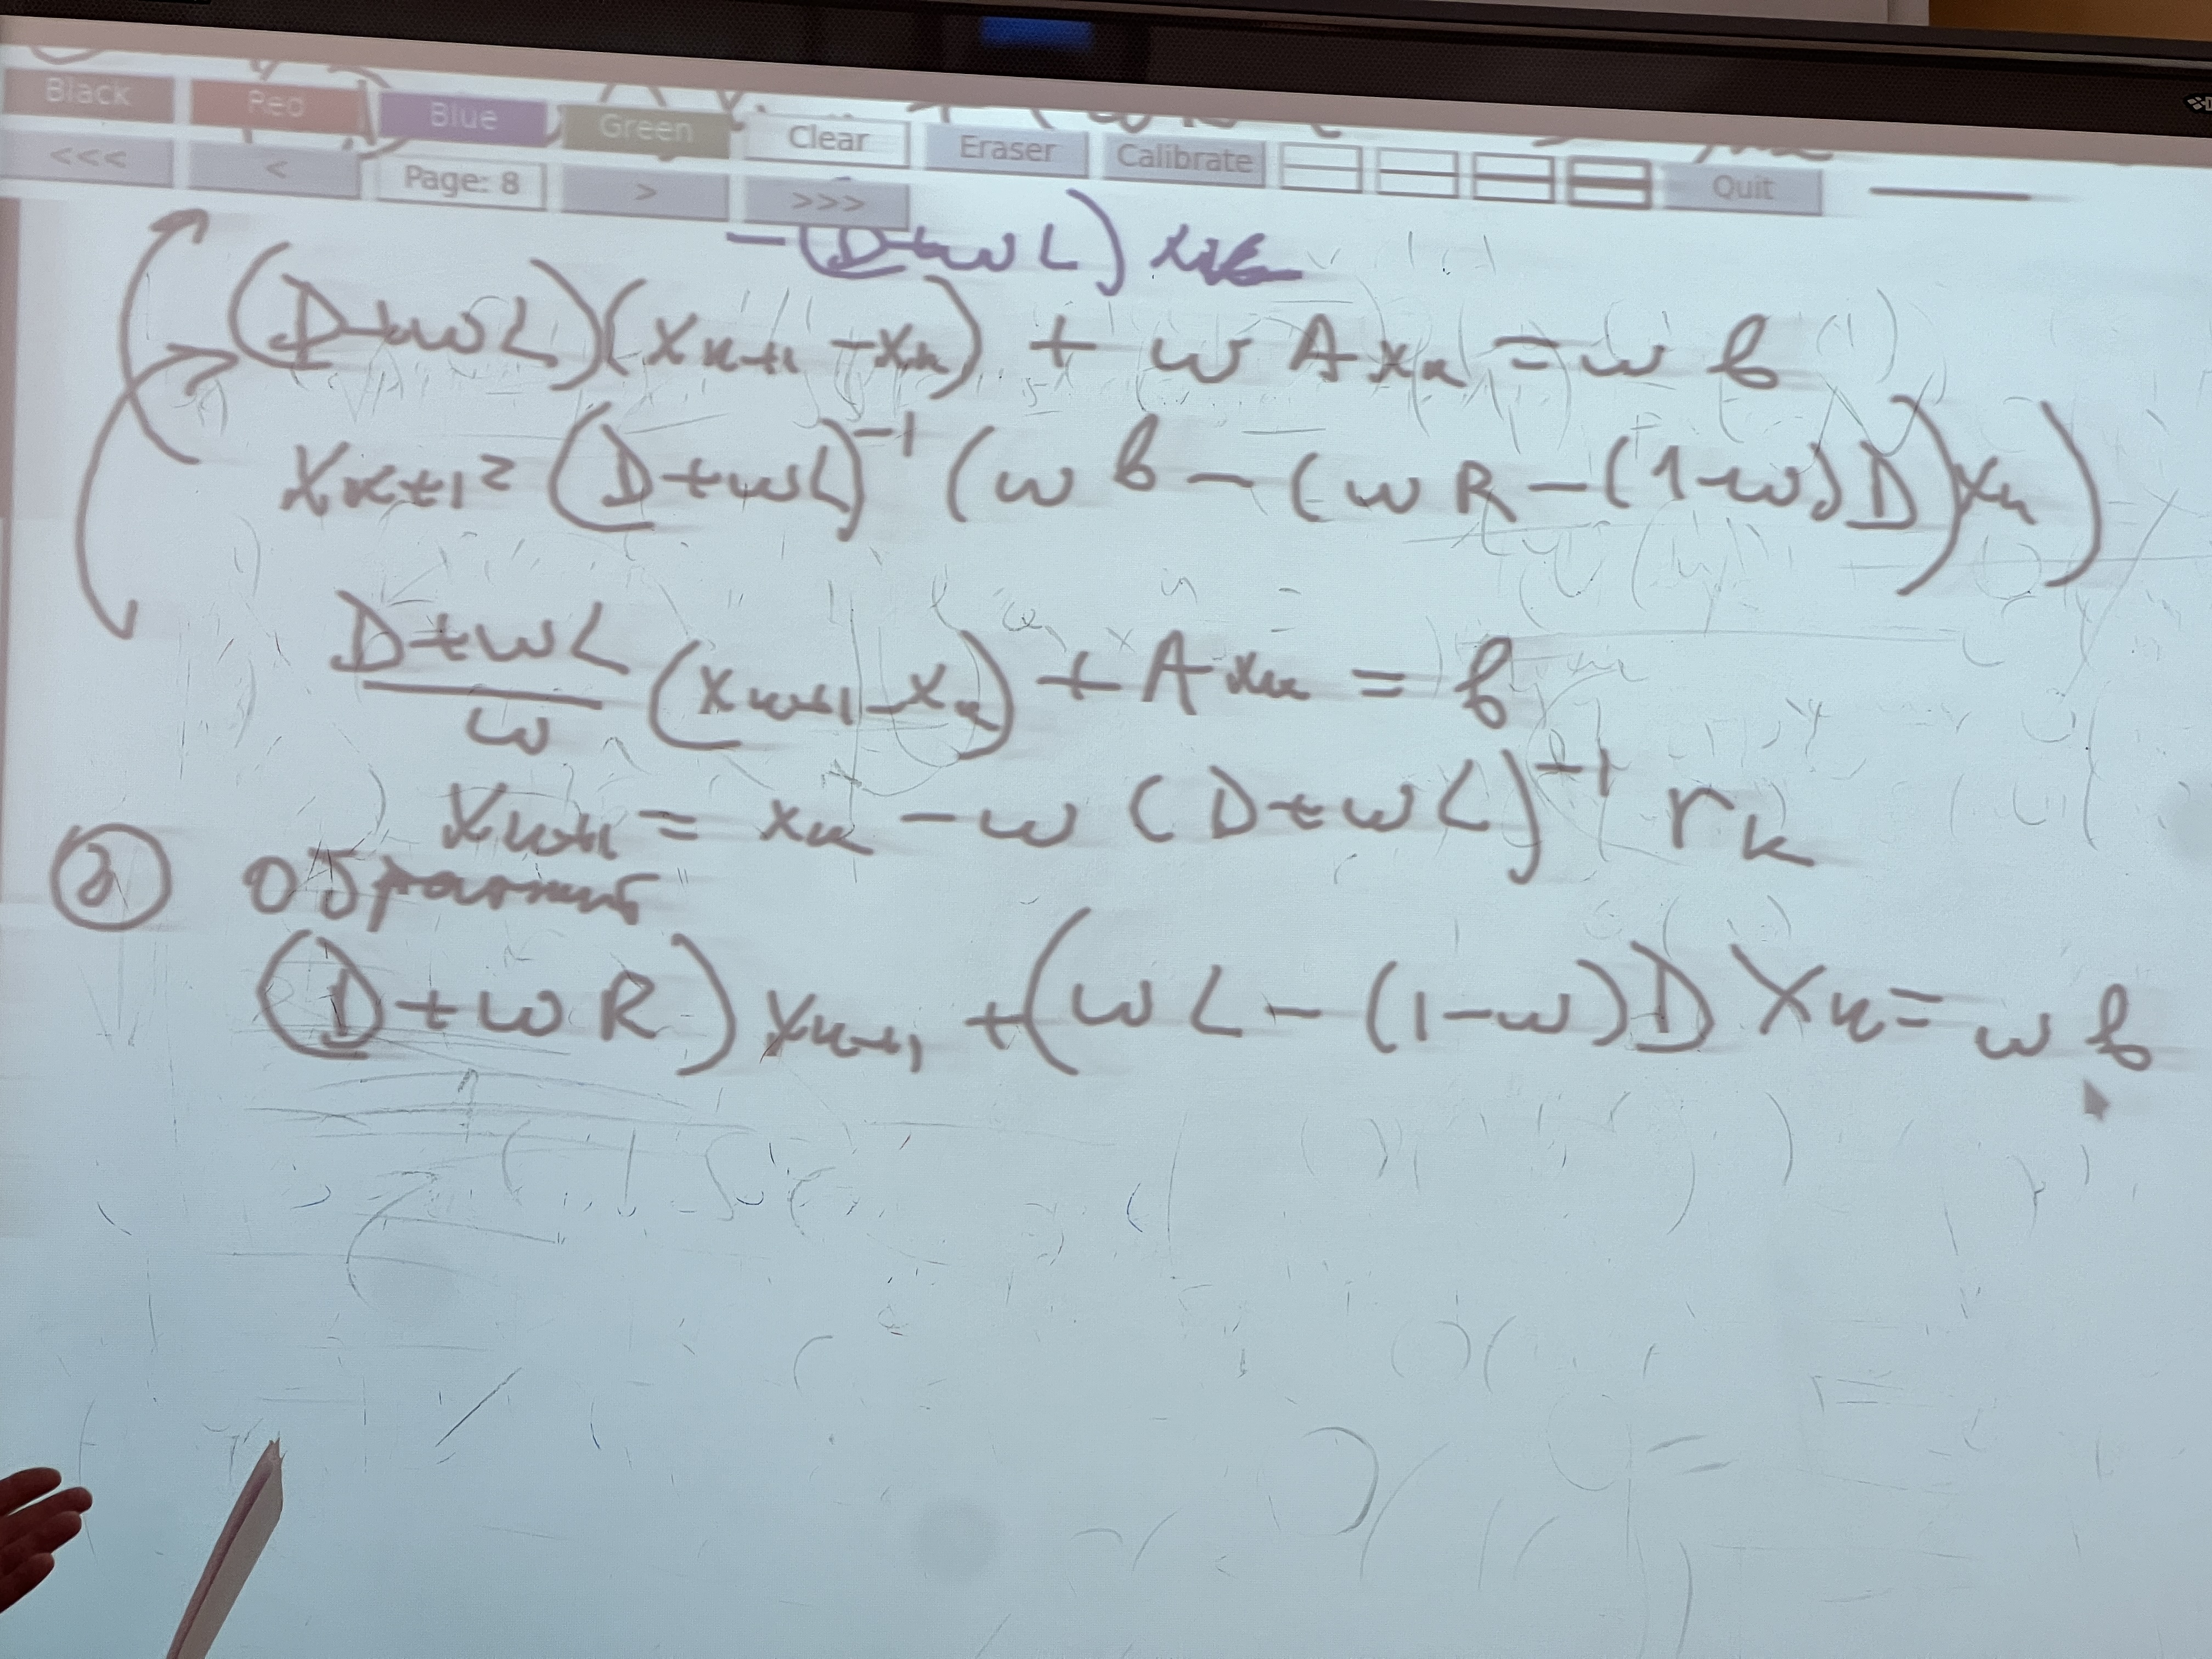 Black Red Blue Green Clear Eraser Calibrate
<<< < Page: 8 > >>> Quit
-(D+ωL)xₖ
(D+ωL)(xₖ₊₁-xₖ) + ω A xₖ = ω b
xₖ₊₁ = (D+ωL)⁻¹ (ω b - (ω R - (1-ω)D)xₖ)
(D+ωL)/ω (xₖ₊₁-xₖ) + A xₖ = b
xₖ₊₁ = xₖ - ω (D+ωL)⁻¹ rₖ
② обратный
(D+ωR)xₖ₊₁ + (ωL - (1-ω)D)xₖ = ω b